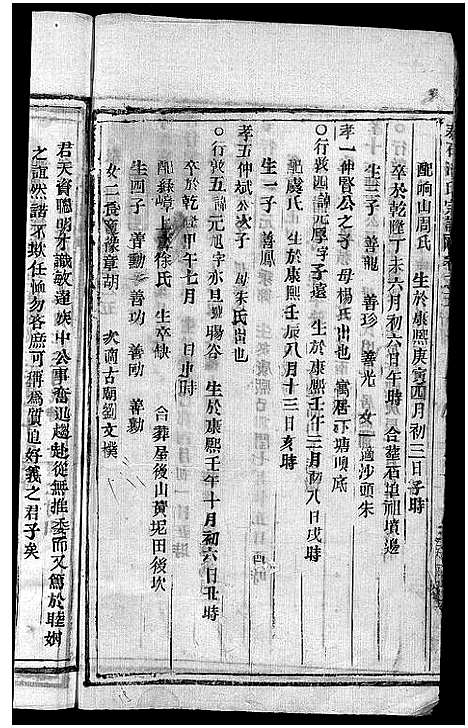 配峋山周氏 生於康熙庚寅四月初三日子時
卒於乾隆丁未六月初六日午時 合葬石埠祖墳邊
生三子 善龍 善珍 善光 女一 適沙頭朱
孝一仲賢公之子 母楊氏出也 寓居下塘頂底
○行敦四諱元厚字子遠 生於康熙壬午三月初八日戌時
配虞氏 生於康熙壬辰八月十三日亥時
生一子 善鳳
孝五仲斌公次子 母朱氏出也
○行敦五諱元旭字亦旦號暘谷 生於康熙壬午十月初六日丑時
卒於乾隆甲午七月 日 時
配錄嶂上徐氏 生卒缺 合葬屋後山黃坭田後坎
生四子 善勳 善功 善助 善勷
女二長適豫章胡 次適古廟劉文樸
君天資聰明才識敏達族中公事奮迅趨赴從無推委而又篤於睦姻
之誼然諾不欺任恤勿吝庶可稱爲質直好義之君子矣